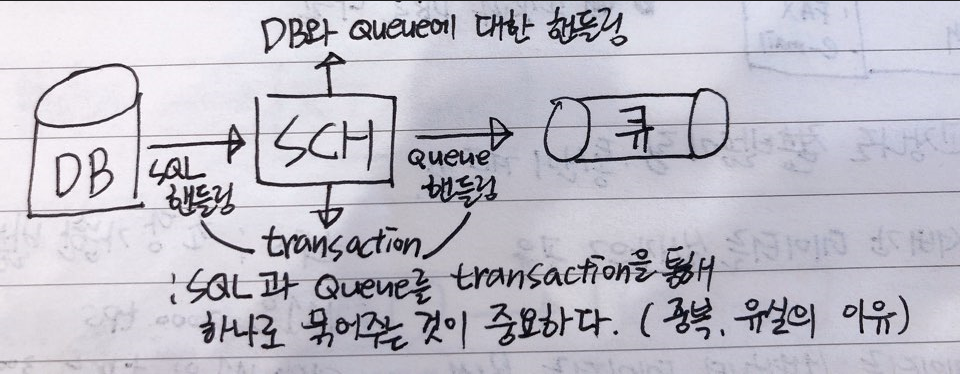 DB와 Queue에 대한 핸들링
DB
SQL
핸들링
SCH
Queue
핸들링
큐
transaction
: SQL과 Queue를 transaction을 통해
하나로 묶어주는 것이 중요하다. (중복, 유실의 이유)